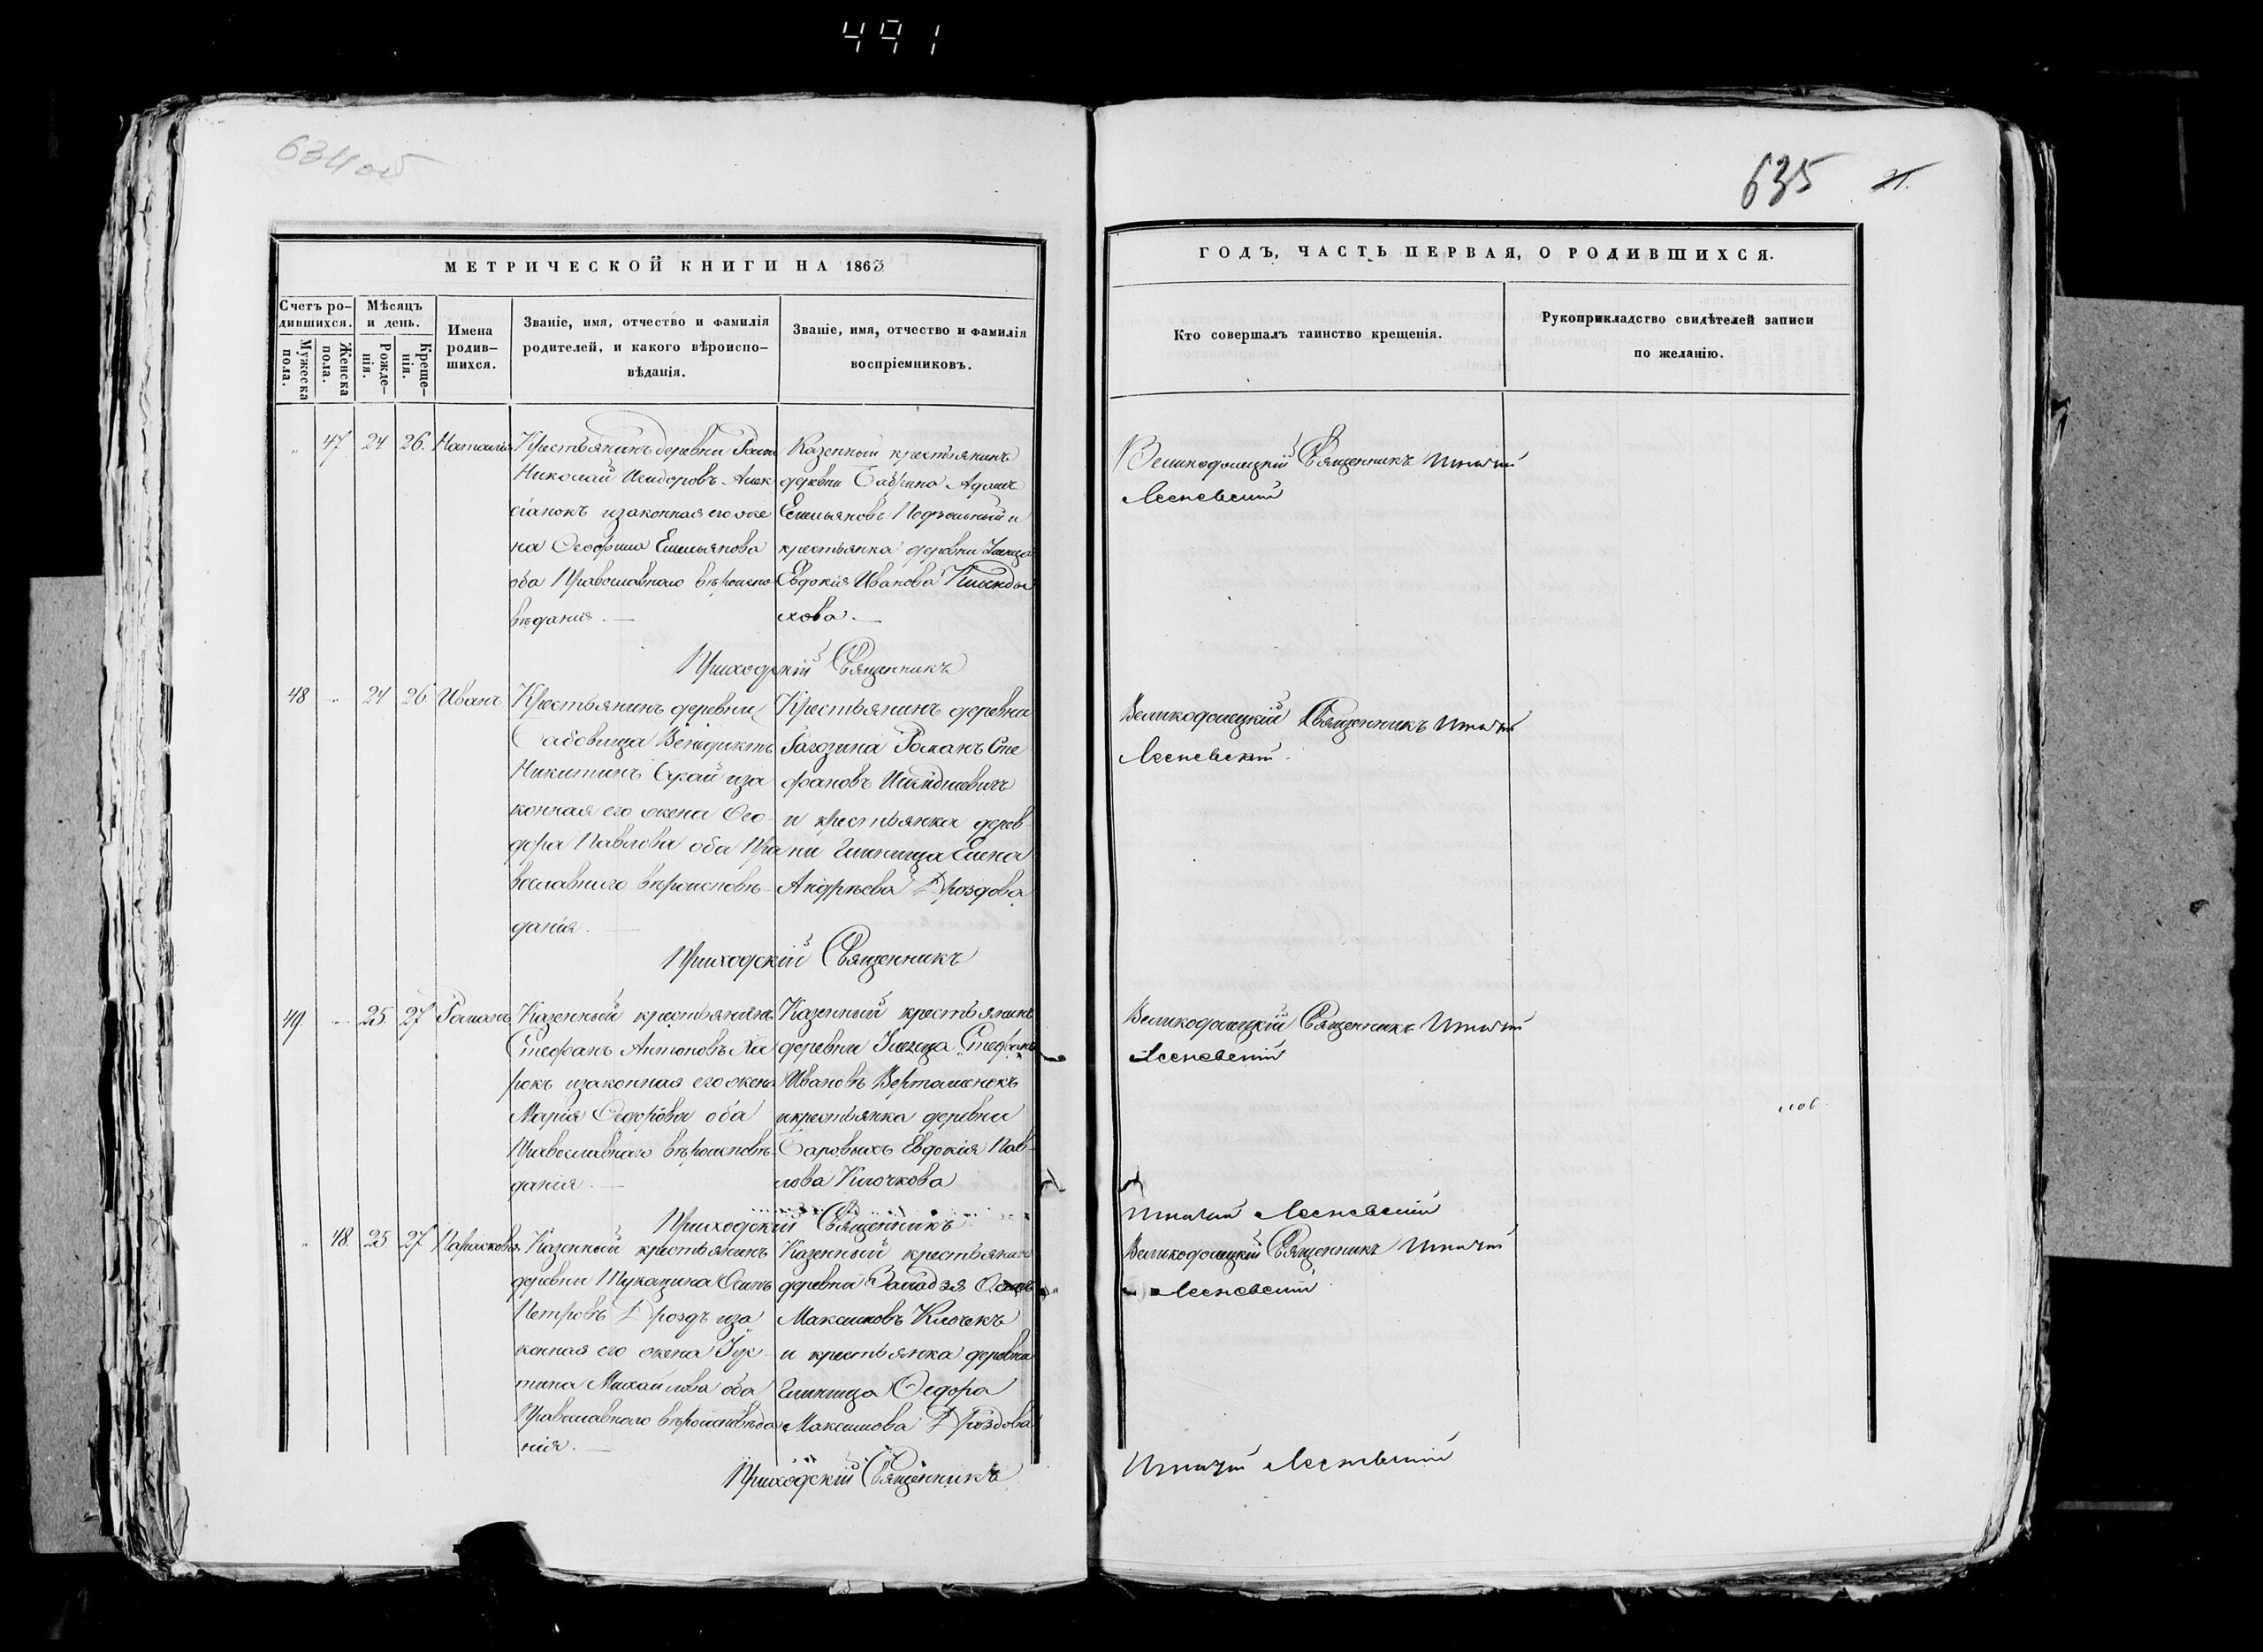 491
634 об
635
21.
МЕТРИЧЕСКОЙ КНИГИ НА 1863
ГОДЪ, ЧАСТЬ ПЕРВАЯ, О РОДИВШИХСЯ.
Счетъ ро-
дившихся.
Мужеска
пола.
Женска
пола.
Мѣсяцъ
и день.
Рожде-
нія.
Креще-
нія.
Имена
родив-
шихся.
Званіе, имя, отчество и фамилія
родителей, и какого вѣроиспо-
вѣданія.
Званіе, имя, отчество и фамилія
воспріемниковъ.
Кто совершалъ таинство крещенія.
Рукоприкладство свидѣтелей записи
по желанію.
47 24 26. Наталія
Крестьянинъ деревни
Николай Исидоровъ
изаконная его же
на Емельянова
оба Православнаго вѣроиспо
вѣданія.
Казенный крестьянинъ
деревни Адамъ
Емельяновъ
крестьянка деревни
Евдокія Иванова
хова.
Великодолецкій Священникъ Игнатій
Лесневскій
Приходскій Священникъ
48 24 26 Иванъ
Крестьянинъ деревни
Венедиктъ
Никитинъ иза
конная его жена Ѳео-
дора Павлова оба Пра
вославнаго вѣроисповѣ-
данія.
Крестьянинъ деревни
Рагозина Романъ Сте
фановъ
и крестьянка дерев-
ни Глиница Елена
Андреева Дроздова
Великодолецкій Священникъ Игнатій
Лесневскій.
Приходскій Священникъ
49 25. 27 Романъ
Казенный крестьянинъ
Стефанъ Антоновъ Ха
рокъ изаконная его жена
Марія Ѳедорова оба
Православнаго вѣроисповѣ-
данія.
Казенный крестьянинъ
деревни Стефанъ
Ивановъ
икрестьянка деревни
Евдокія Пав-
лова Клочкова
Великодолецкій Священникъ Игнатій
Лесневскій
Приходскій Священникъ
Игнатій Лесневскій
48. 25 27 Парасковія
Казенный крестьянинъ
деревни Осипъ
Петровъ Дроздъ иза
конная его жена Іус-
тина Михайлова оба
Православнаго вѣроисповѣда
нія.
Казенный крестьянинъ
деревни
Максимовъ Клочекъ
и крестьянка деревни
Глиница Ѳедора
Максимова Дроздова
Великодолецкій Священникъ Игнатій
Лесневскій
Приходскій Священникъ
Игнатій Лесневскій